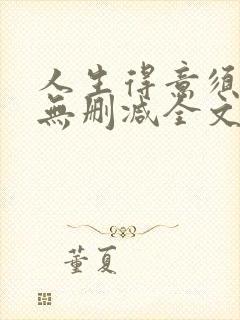 人生得意须
無删减全文
董夏